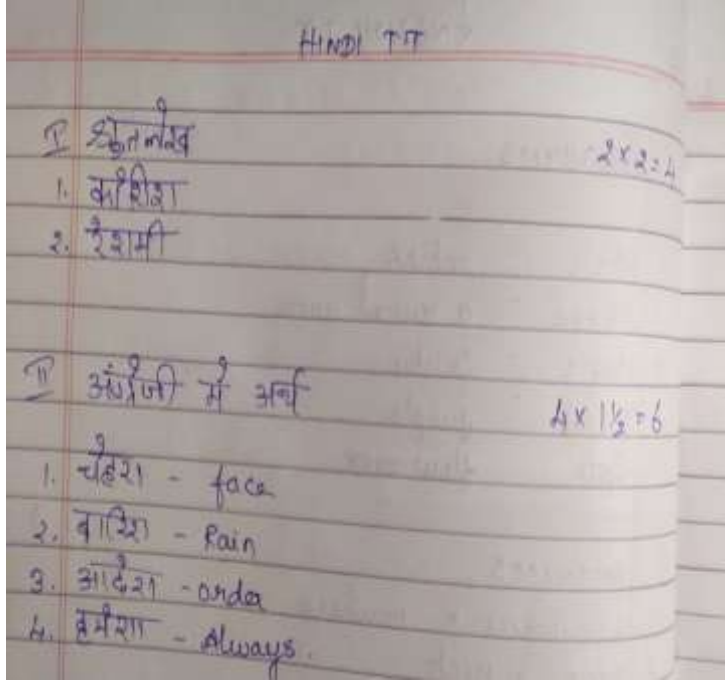 HINDI TT
I श्रुतलेख 2 x 2 = 4
1. कोशिश
2. रेशमी
II अंग्रेजी में अर्थ 4 x 1½ = 6
1. चेहरा - face
2. बारिश - Rain
3. आदेश - order
4. हमेशा - Always.